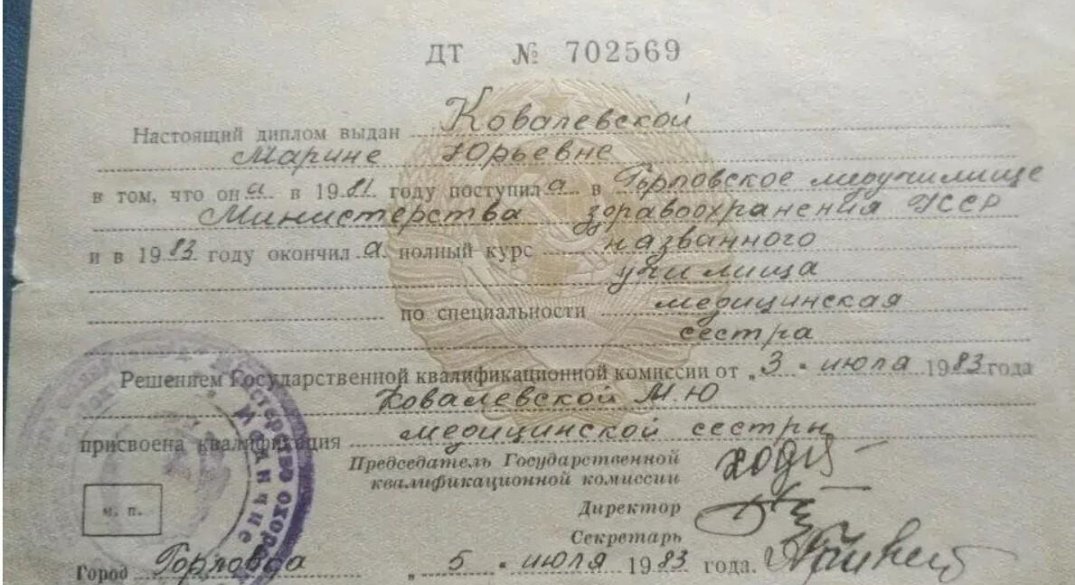 ДТ № 702569
Настоящий диплом выдан Ковалевской
Марине Юрьевне
в том, что она в 1981 году поступила в Горловское медучилище
Министерства здравоохранения УССР
и в 1983 году окончила полный курс названного
училища
по специальности медицинская
сестра
Решением Государственной квалификационной комиссии от „3" июля 1983 года
Ковалевской М.Ю
присвоена квалификация медицинской сестры
Председатель Государственной
квалификационной комиссии
Директор
Секретарь
м. п.
Город Горловка „5" июля 1983 года.